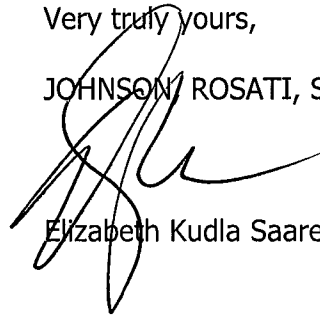 Very truly yours,
JOHNSON, ROSATI, S
Elizabeth Kudla Saare